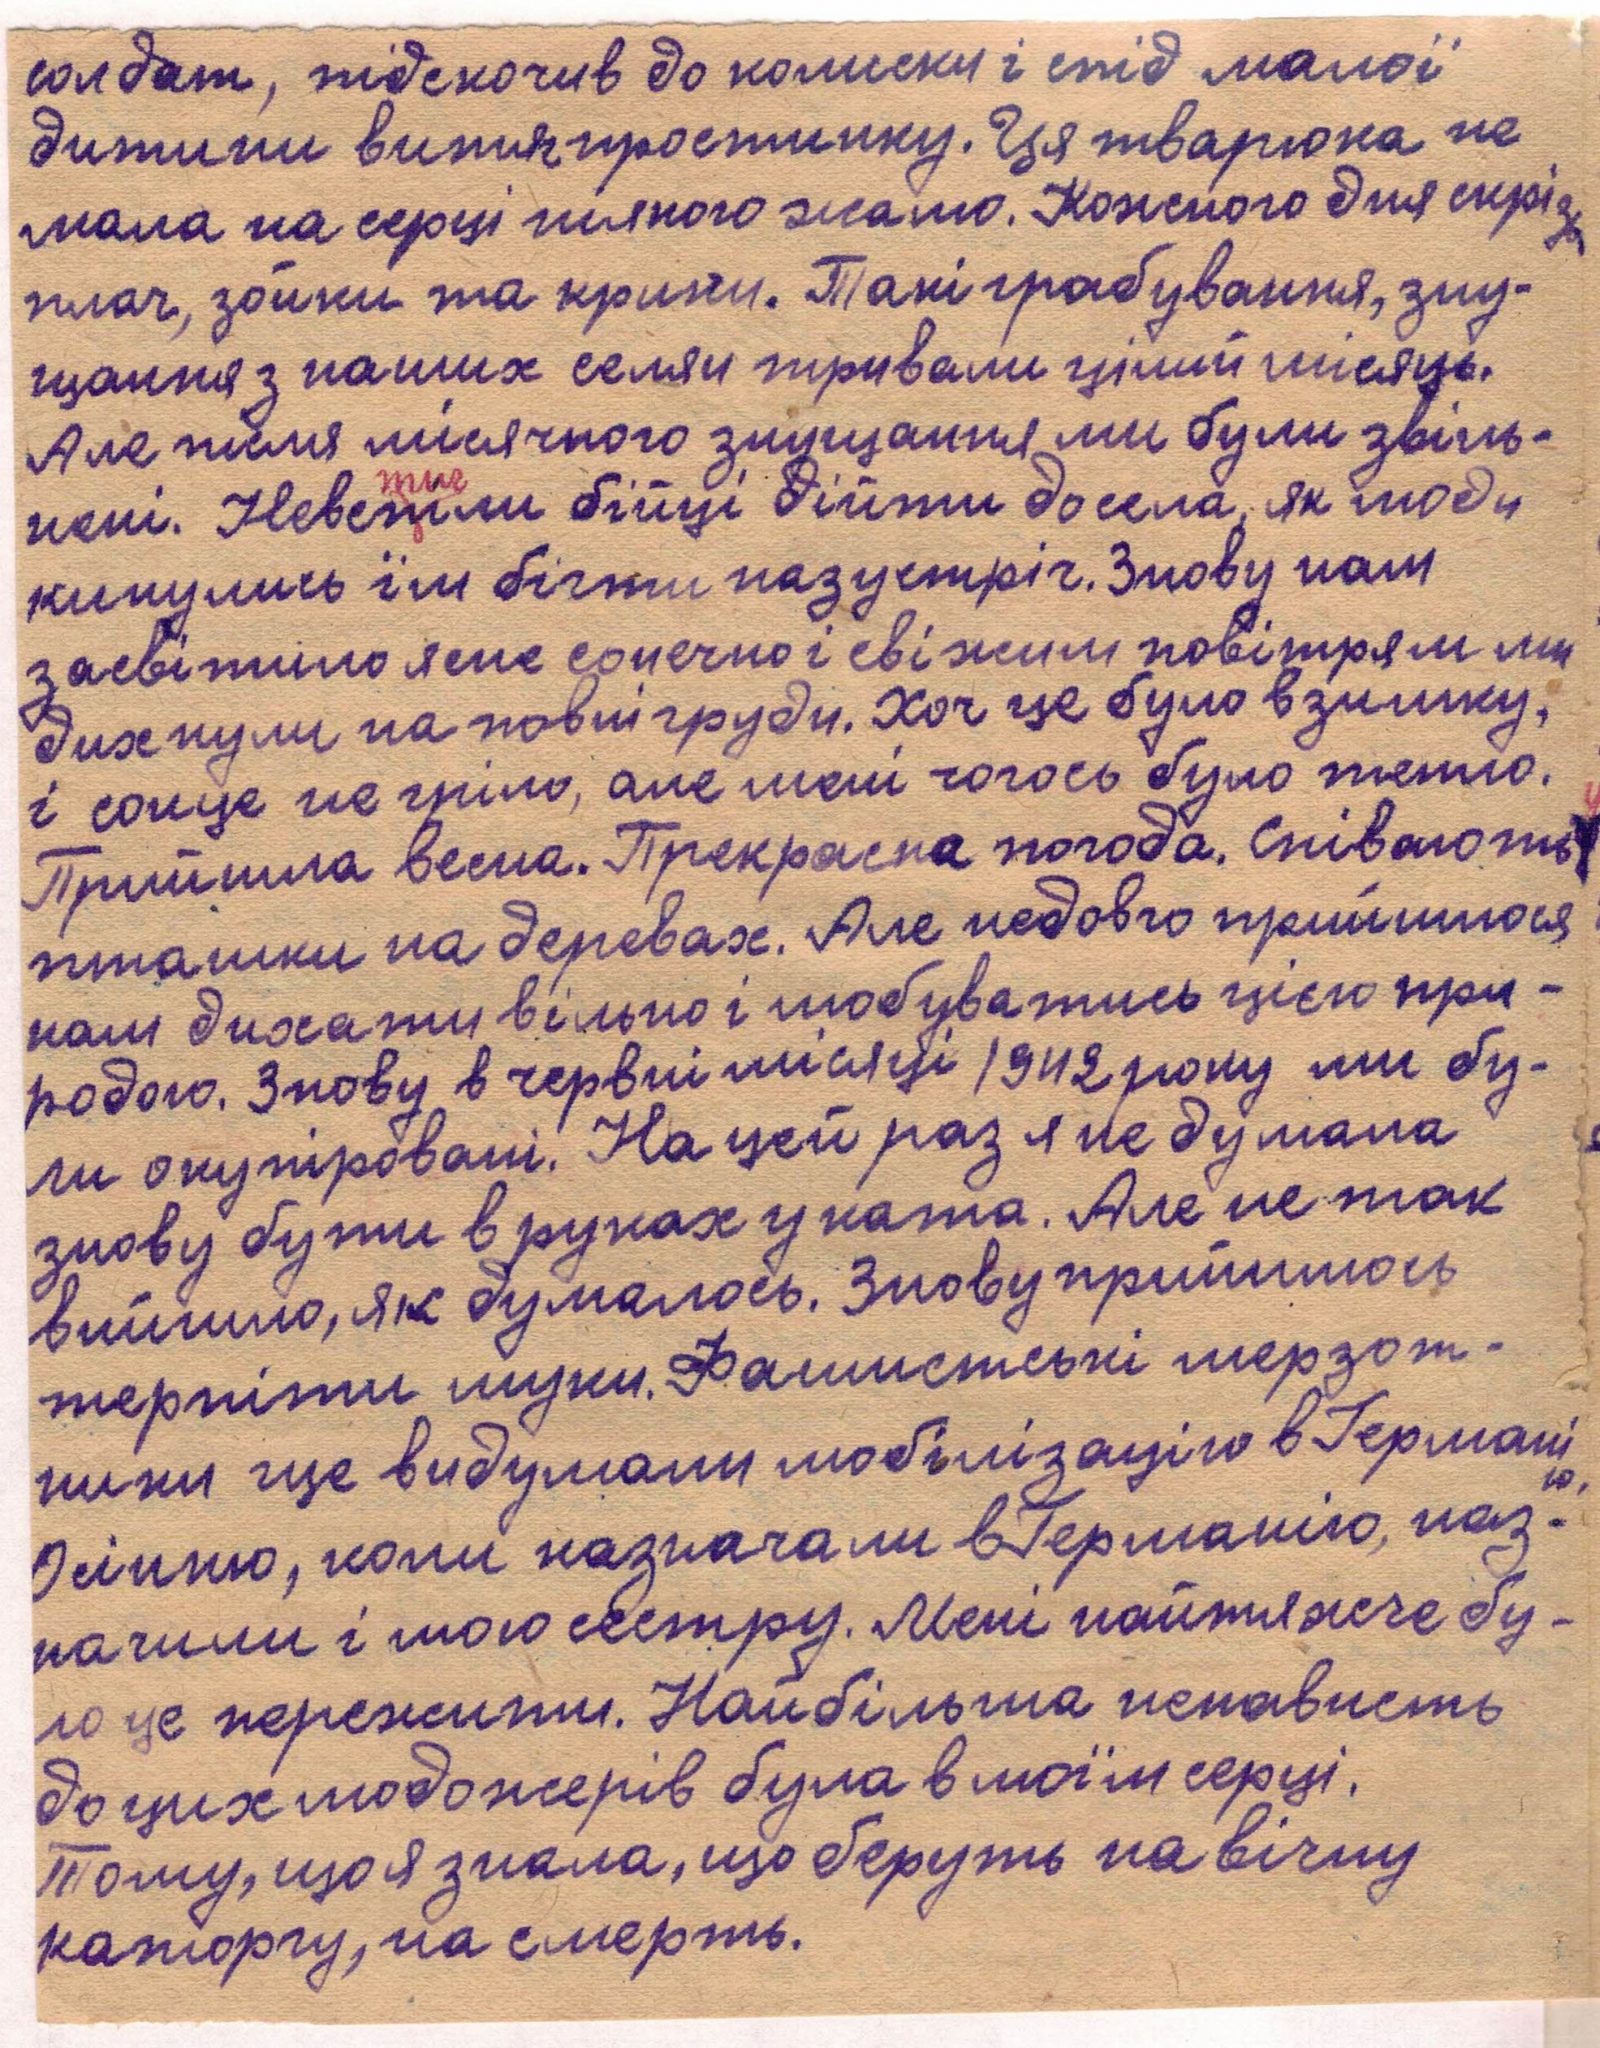 солдат, підскочив до колиски і спід малої
дитини витяг простинку. Ця тварюка не
мала на серці ніякого жалю. Кожного дня скрізь
плач, зойки та крики. Такі грабування, зну-
щання з наших селян тривали цілий місяць.
Але після місячного знущання ми були звіль-
нені. Невстигли бійці дійти до села, як люди
кинулись їм бігти назустріч. Знову нам
засвітило ясне сонечко і свіжим повітрям ми
дихнули на повні груди. Хоч це було взимку,
і сонце не гріло, але мені чогось було тепло.
Прийшла весна. Прекрасна погода. Співають
пташки на деревах. Але недовго прийшлося
нам дихати вільно і любуватись цією при-
родою. Знову в червні місяці 1942 року ми бу-
ли окупіровані. На цей раз я не думала
знову бути в руках у ката. Але не так
вийшло, як думалось. Знову прийшлось
терпіти муки. Фашистські мерзот-
ники ще видумали мобілізацію в Германію.
Осінню, коли назначали в Германію, наз-
начили і мою сестру. Мені найтяжче бу-
ло це пережити. Найбільша ненависть
до цих людожерів була в моїм серці.
Тому, що я знала, що беруть на вічну
каторгу, на смерть.